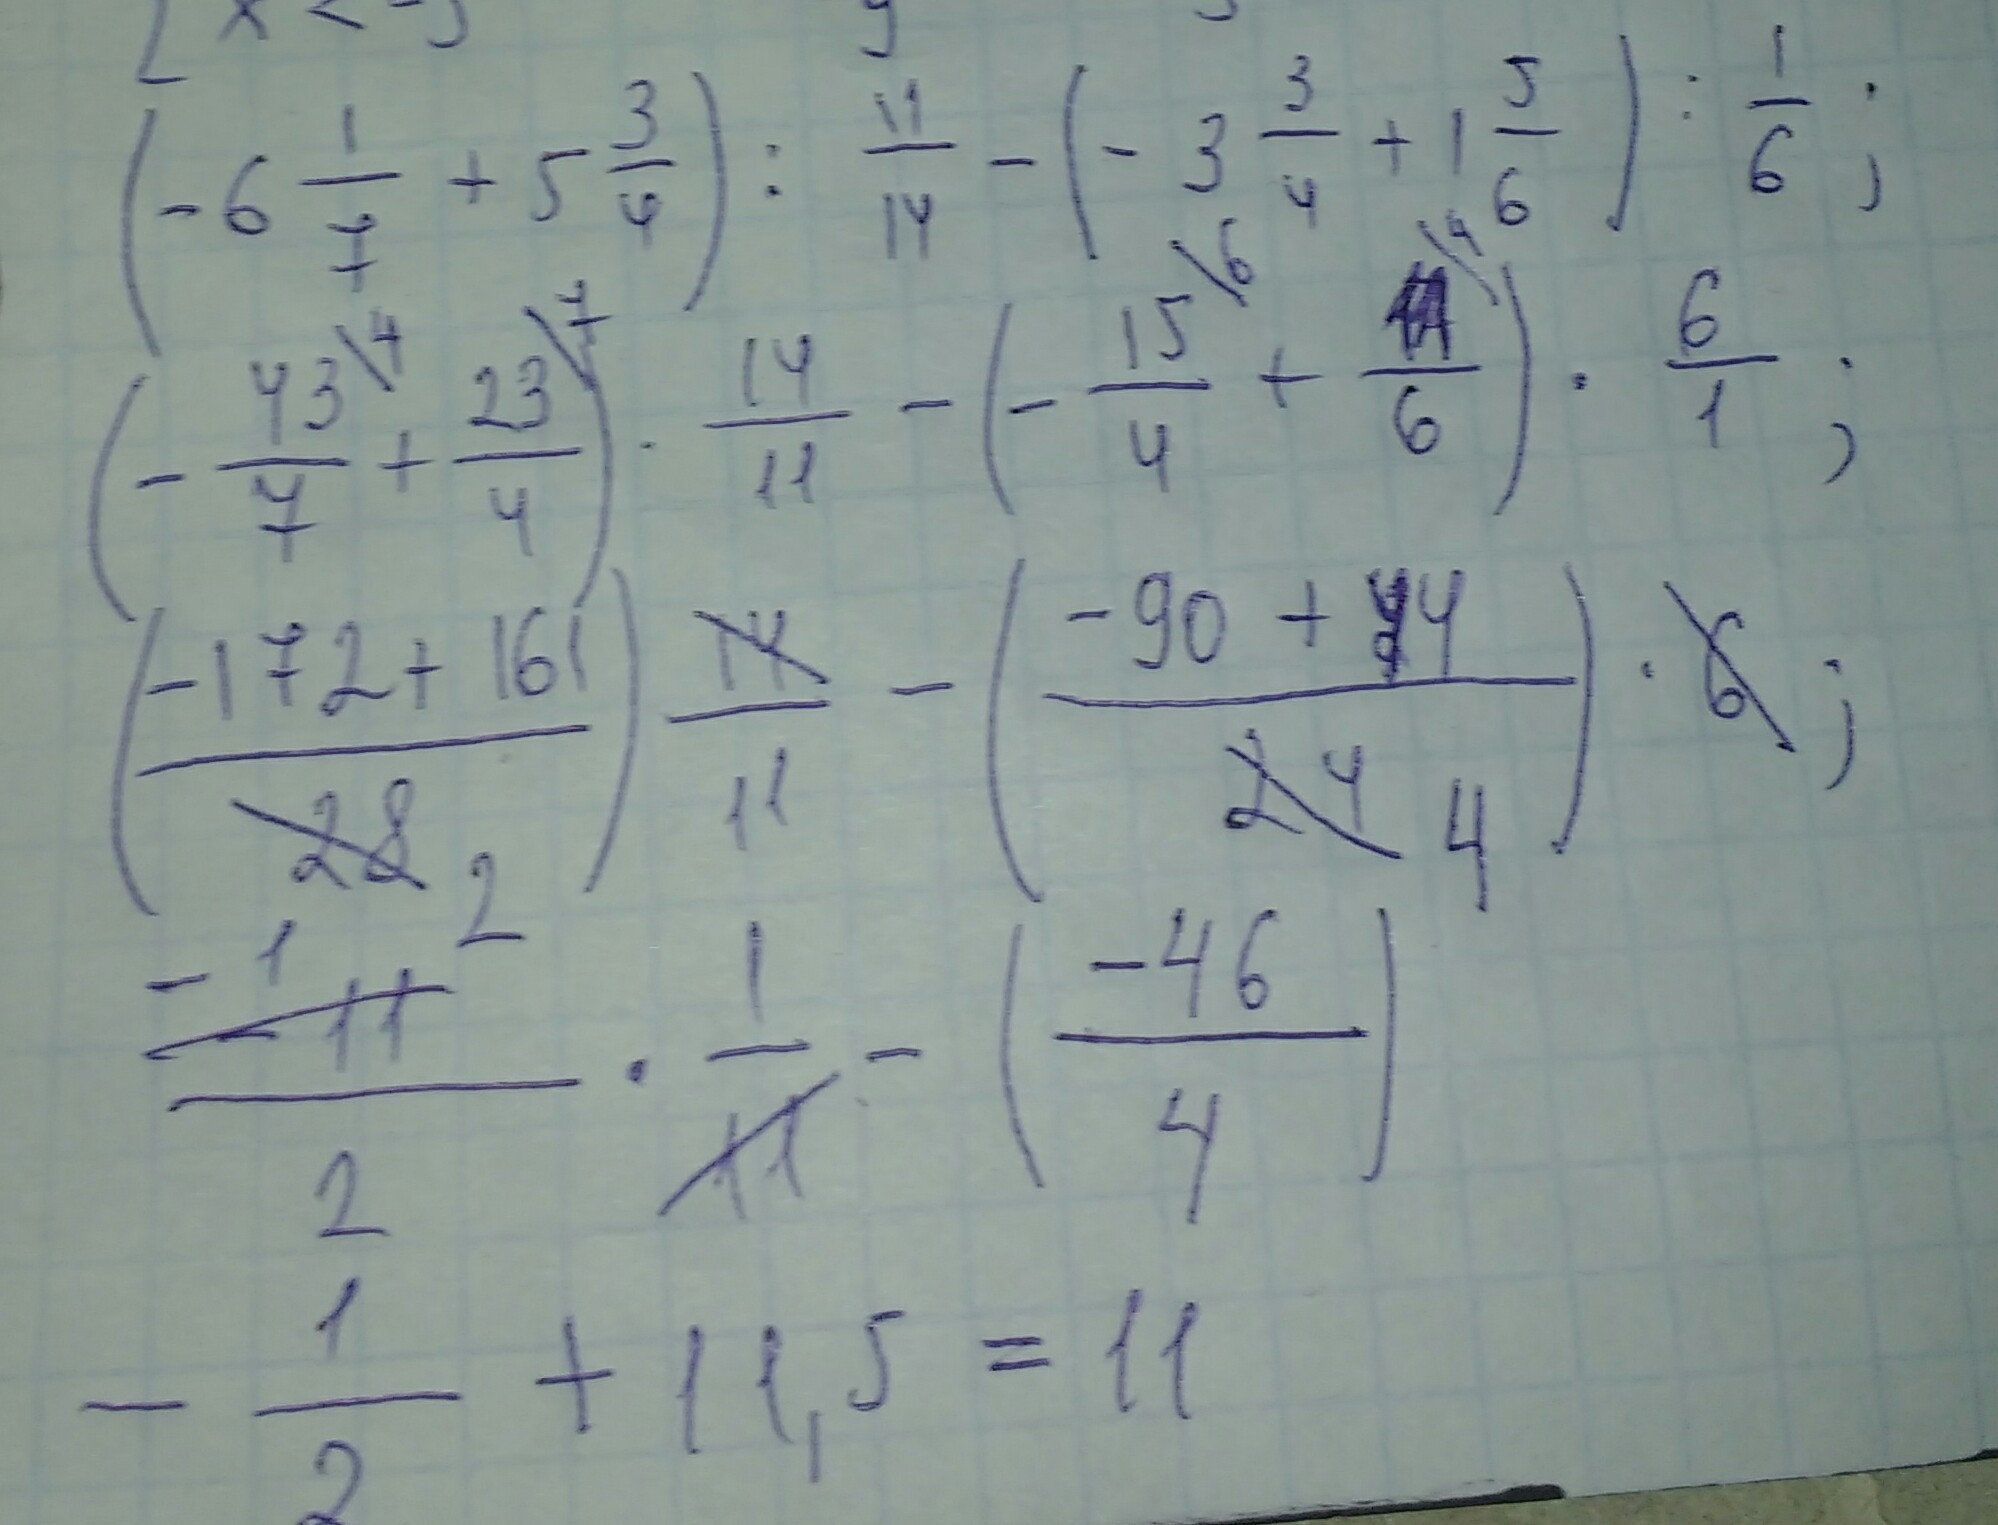 [ x < -5
(-6 1/7 + 5 3/4) : 11/14 - (-3 3/4 + 1 5/6) : 1/6 ;
(- 43\4/7 + 23\7/4) · 14/11 - (- 15\6/4 + 11\4/6) · 6/1 ;
(-172 + 161/28 2) 14/11 - (-90 + 44/24 4) · 6 ;
-1 -11/2 · 1/11 - (-46/4)
- 1/2 + 11,5 = 11